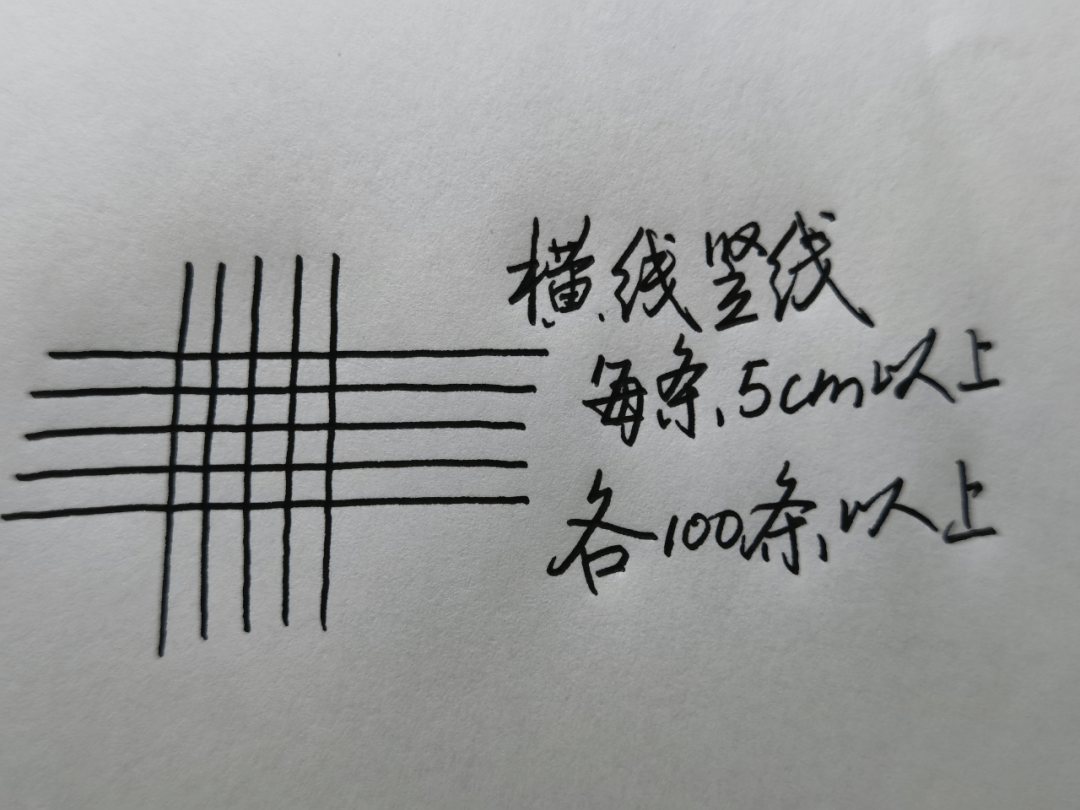 横线竖线
每条5cm以上
各100条以上